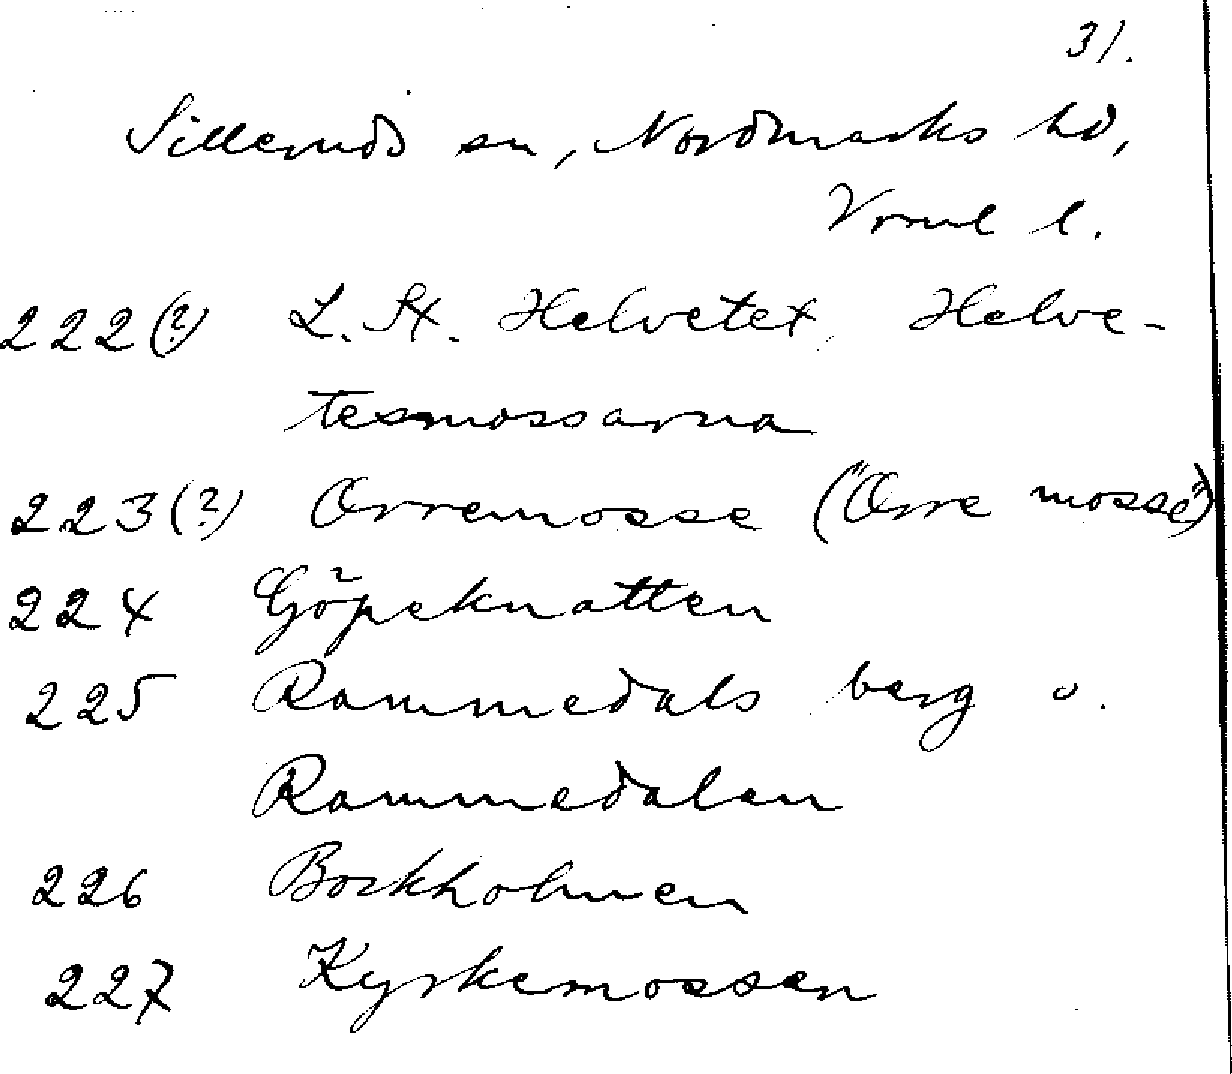 31.
Silleruds sn, Nordmarks hd,
Vrml l.
222(?) L. St. Helvetet, Helve-
tesmossarna
223(?) Orremosse ("Orre mosse")
224 Göpeknatten
225 Rammedals berg o.
Rammedalen
226 Bockholmen
227 Kyrkemossen